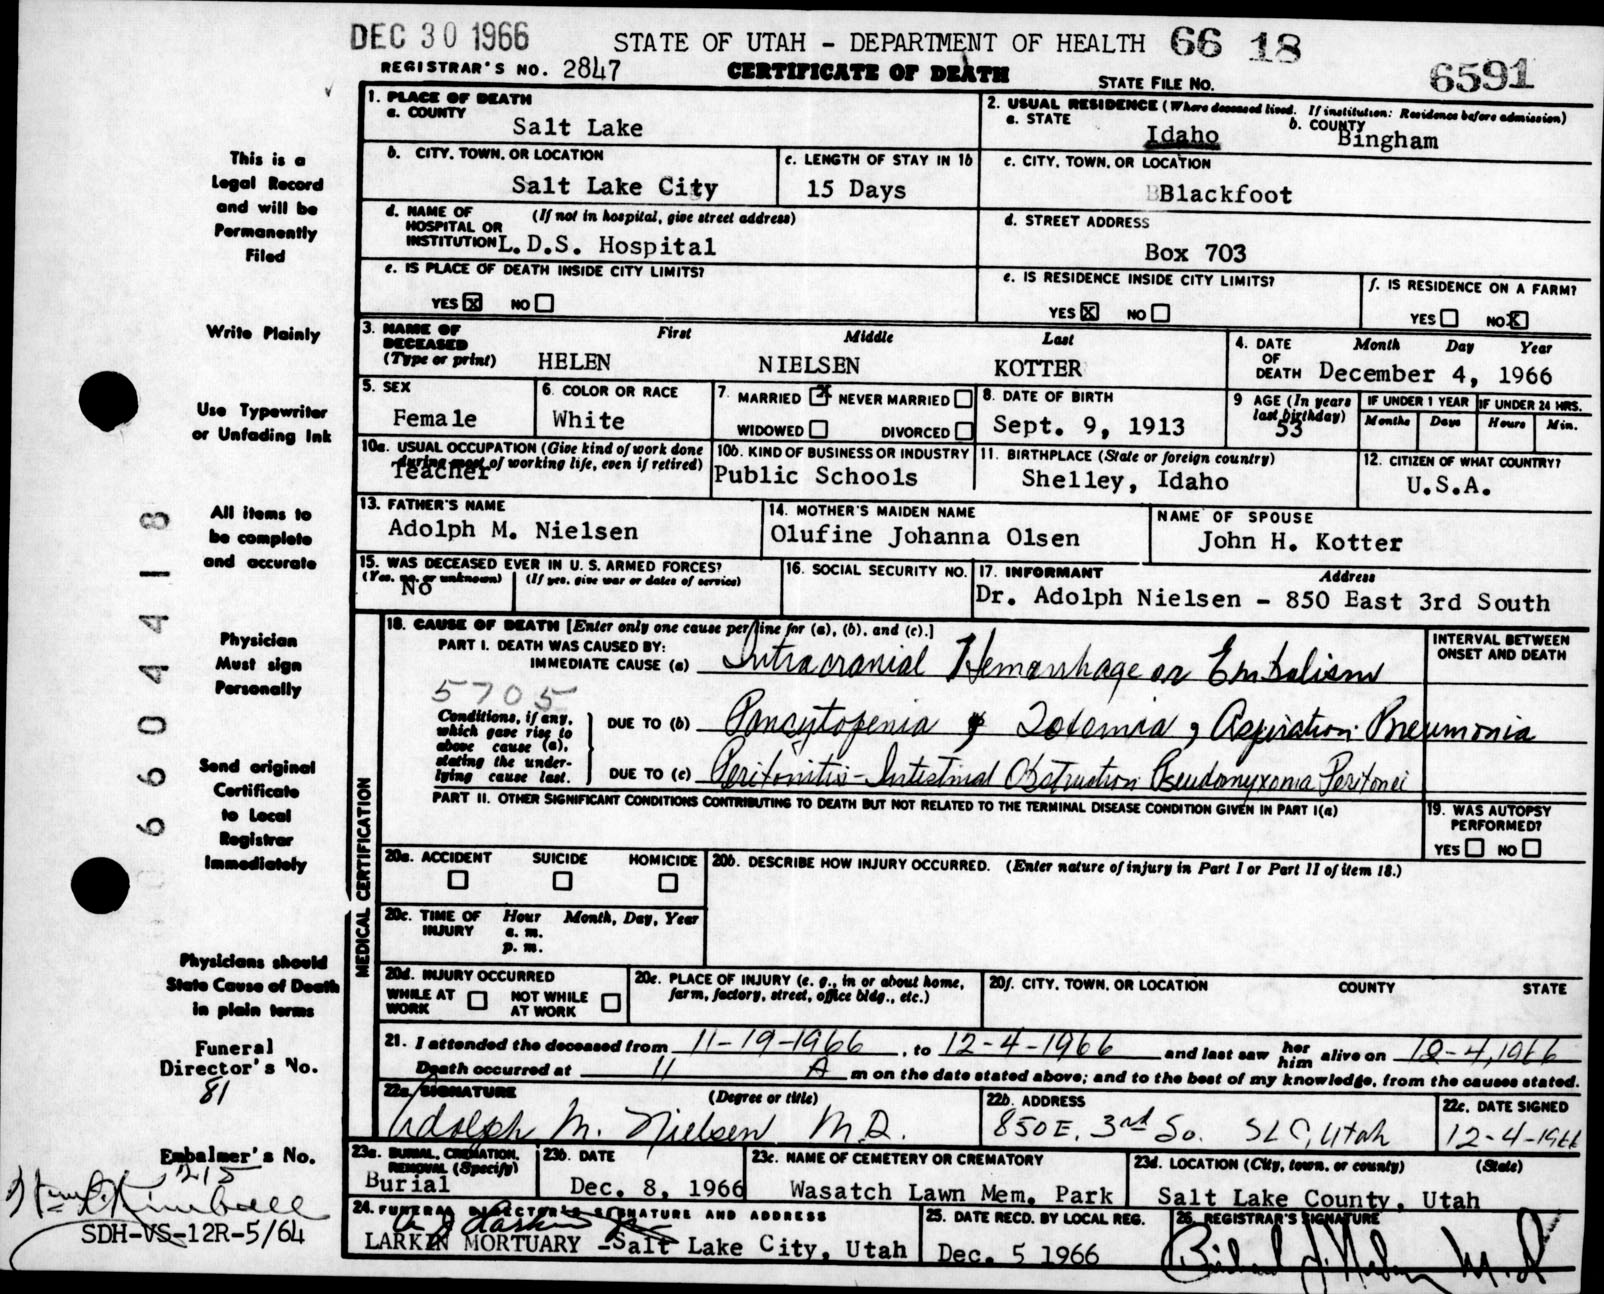 DEC 30 1966 STATE OF UTAH - DEPARTMENT OF HEALTH 66 18
REGISTRAR'S NO. 2847 CERTIFICATE OF DEATH STATE FILE NO. 6591
This is a Legal Record and will be Permanently Filed
Write Plainly
Use Typewriter or Unfading Ink
All items to be complete and accurate
Physician Must sign Personally
Send original Certificate to Local Registrar Immediately
Physicians should State Cause of Death in plain terms
Funeral Director's No.
81
Embalmer's No.
215
SDH-VS-12R-5/64
66 04418
1. PLACE OF DEATH
a. COUNTY
Salt Lake
2. USUAL RESIDENCE (Where deceased lived. If institution: Residence before admission)
a. STATE Idaho b. COUNTY Bingham
b. CITY, TOWN, OR LOCATION
Salt Lake City
c. LENGTH OF STAY IN 1b
15 Days
c. CITY, TOWN, OR LOCATION
Blackfoot
d. NAME OF HOSPITAL OR INSTITUTION (If not in hospital, give street address)
L.D.S. Hospital
d. STREET ADDRESS
Box 703
e. IS PLACE OF DEATH INSIDE CITY LIMITS?
YES X NO
e. IS RESIDENCE INSIDE CITY LIMITS?
YES X NO
f. IS RESIDENCE ON A FARM?
YES NO X
3. NAME OF DECEASED (Type or print) First Middle Last
HELEN NIELSEN KOTTER
4. DATE OF DEATH Month Day Year
December 4, 1966
5. SEX
Female
6. COLOR OR RACE
White
7. MARRIED X NEVER MARRIED
WIDOWED DIVORCED
8. DATE OF BIRTH
Sept. 9, 1913
9 AGE (In years last birthday)
53
IF UNDER 1 YEAR IF UNDER 24 HRS.
Months Days Hours Min.
10a. USUAL OCCUPATION (Give kind of work done during most of working life, even if retired)
Teacher
10b. KIND OF BUSINESS OR INDUSTRY
Public Schools
11. BIRTHPLACE (State or foreign country)
Shelley, Idaho
12. CITIZEN OF WHAT COUNTRY?
U.S.A.
13. FATHER'S NAME
Adolph M. Nielsen
14. MOTHER'S MAIDEN NAME
Olufine Johanna Olsen
NAME OF SPOUSE
John H. Kotter
15. WAS DECEASED EVER IN U. S. ARMED FORCES?
(Yes, no, or unknown) (If yes, give war or dates of service)
No
16. SOCIAL SECURITY NO.
17. INFORMANT Address
Dr. Adolph Nielsen - 850 East 3rd South
MEDICAL CERTIFICATION
18. CAUSE OF DEATH [Enter only one cause per line for (a), (b), and (c).]
PART I. DEATH WAS CAUSED BY:
IMMEDIATE CAUSE (a) Intracranial Hemorrhage or Embolism
INTERVAL BETWEEN ONSET AND DEATH
5705
Conditions, if any, which gave rise to above cause (a), stating the underlying cause last.
DUE TO (b) Pancytopenia & Toxemia, Aspiration Pneumonia
DUE TO (c) Peritonitis - Intestinal Obstruction Pseudomyxoma Peritonei
PART II. OTHER SIGNIFICANT CONDITIONS CONTRIBUTING TO DEATH BUT NOT RELATED TO THE TERMINAL DISEASE CONDITION GIVEN IN PART I(a)
19. WAS AUTOPSY PERFORMED?
YES NO
20a. ACCIDENT SUICIDE HOMICIDE
20b. DESCRIBE HOW INJURY OCCURRED. (Enter nature of injury in Part I or Part II of item 18.)
20c. TIME OF INJURY Hour Month, Day, Year
a. m.
p. m.
20d. INJURY OCCURRED
WHILE AT WORK NOT WHILE AT WORK
20e. PLACE OF INJURY (e. g., in or about home, farm, factory, street, office bldg., etc.)
20f. CITY, TOWN, OR LOCATION COUNTY STATE
21. I attended the deceased from 11-19-1966, to 12-4-1966 and last saw her him alive on 12-4, 1966
Death occurred at 11 A m on the date stated above; and to the best of my knowledge, from the causes stated.
22a. SIGNATURE (Degree or title)
Adolph M. Nielsen M.D.
22b. ADDRESS
850 E. 3rd So. SLC, Utah
22c. DATE SIGNED
12-4-1966
23a. BURIAL, CREMATION, REMOVAL (Specify)
Burial
23b. DATE
Dec. 8, 1966
23c. NAME OF CEMETERY OR CREMATORY
Wasatch Lawn Mem. Park
23d. LOCATION (City, town, or county) (State)
Salt Lake County, Utah
24. FUNERAL DIRECTOR'S SIGNATURE AND ADDRESS
LARKIN MORTUARY - Salt Lake City, Utah
25. DATE RECD. BY LOCAL REG.
Dec. 5 1966
26. REGISTRAR'S SIGNATURE